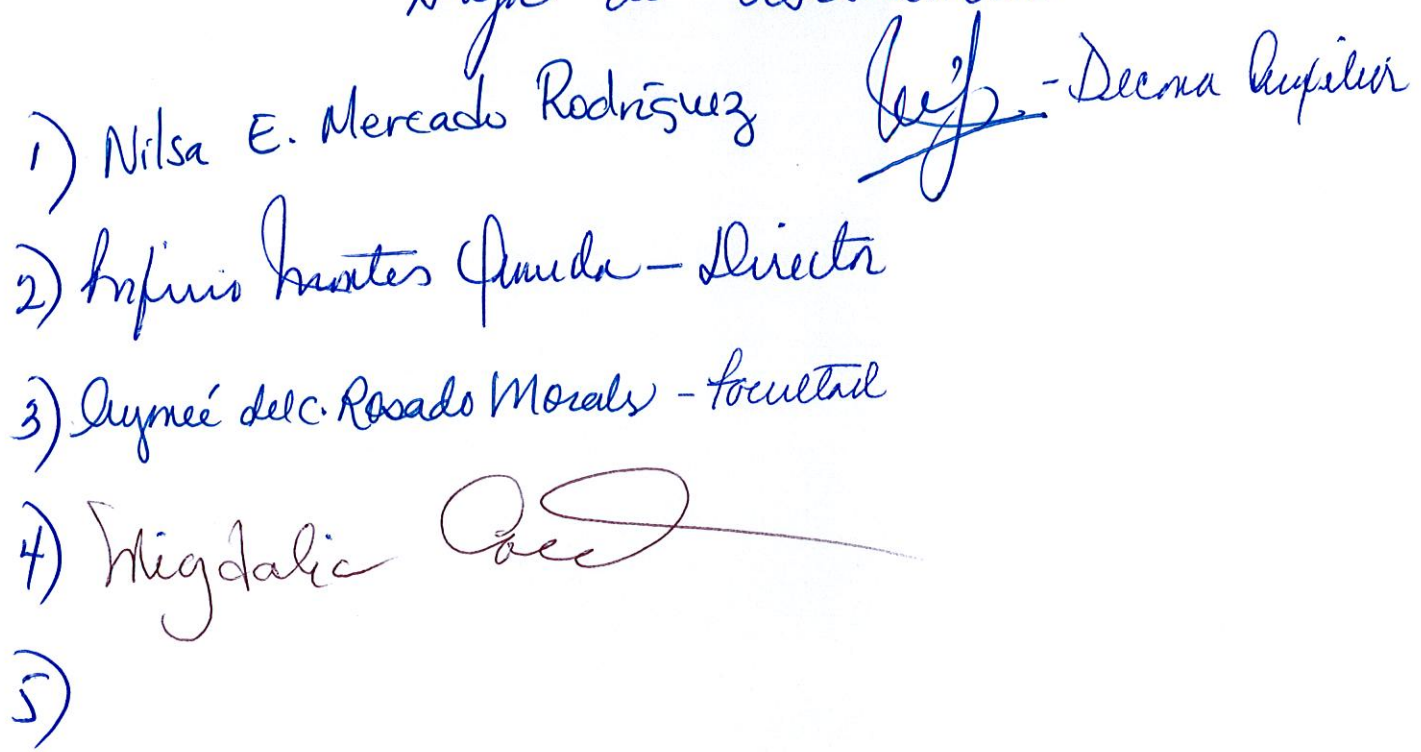 Hoja de
1) Nilsa E. Mercado Rodríguez - Decana Auxiliar
2) Porfirio Montes - Director
3) Aymeé del C. Rosado Morales - Facultad
4) Migdalia
5)